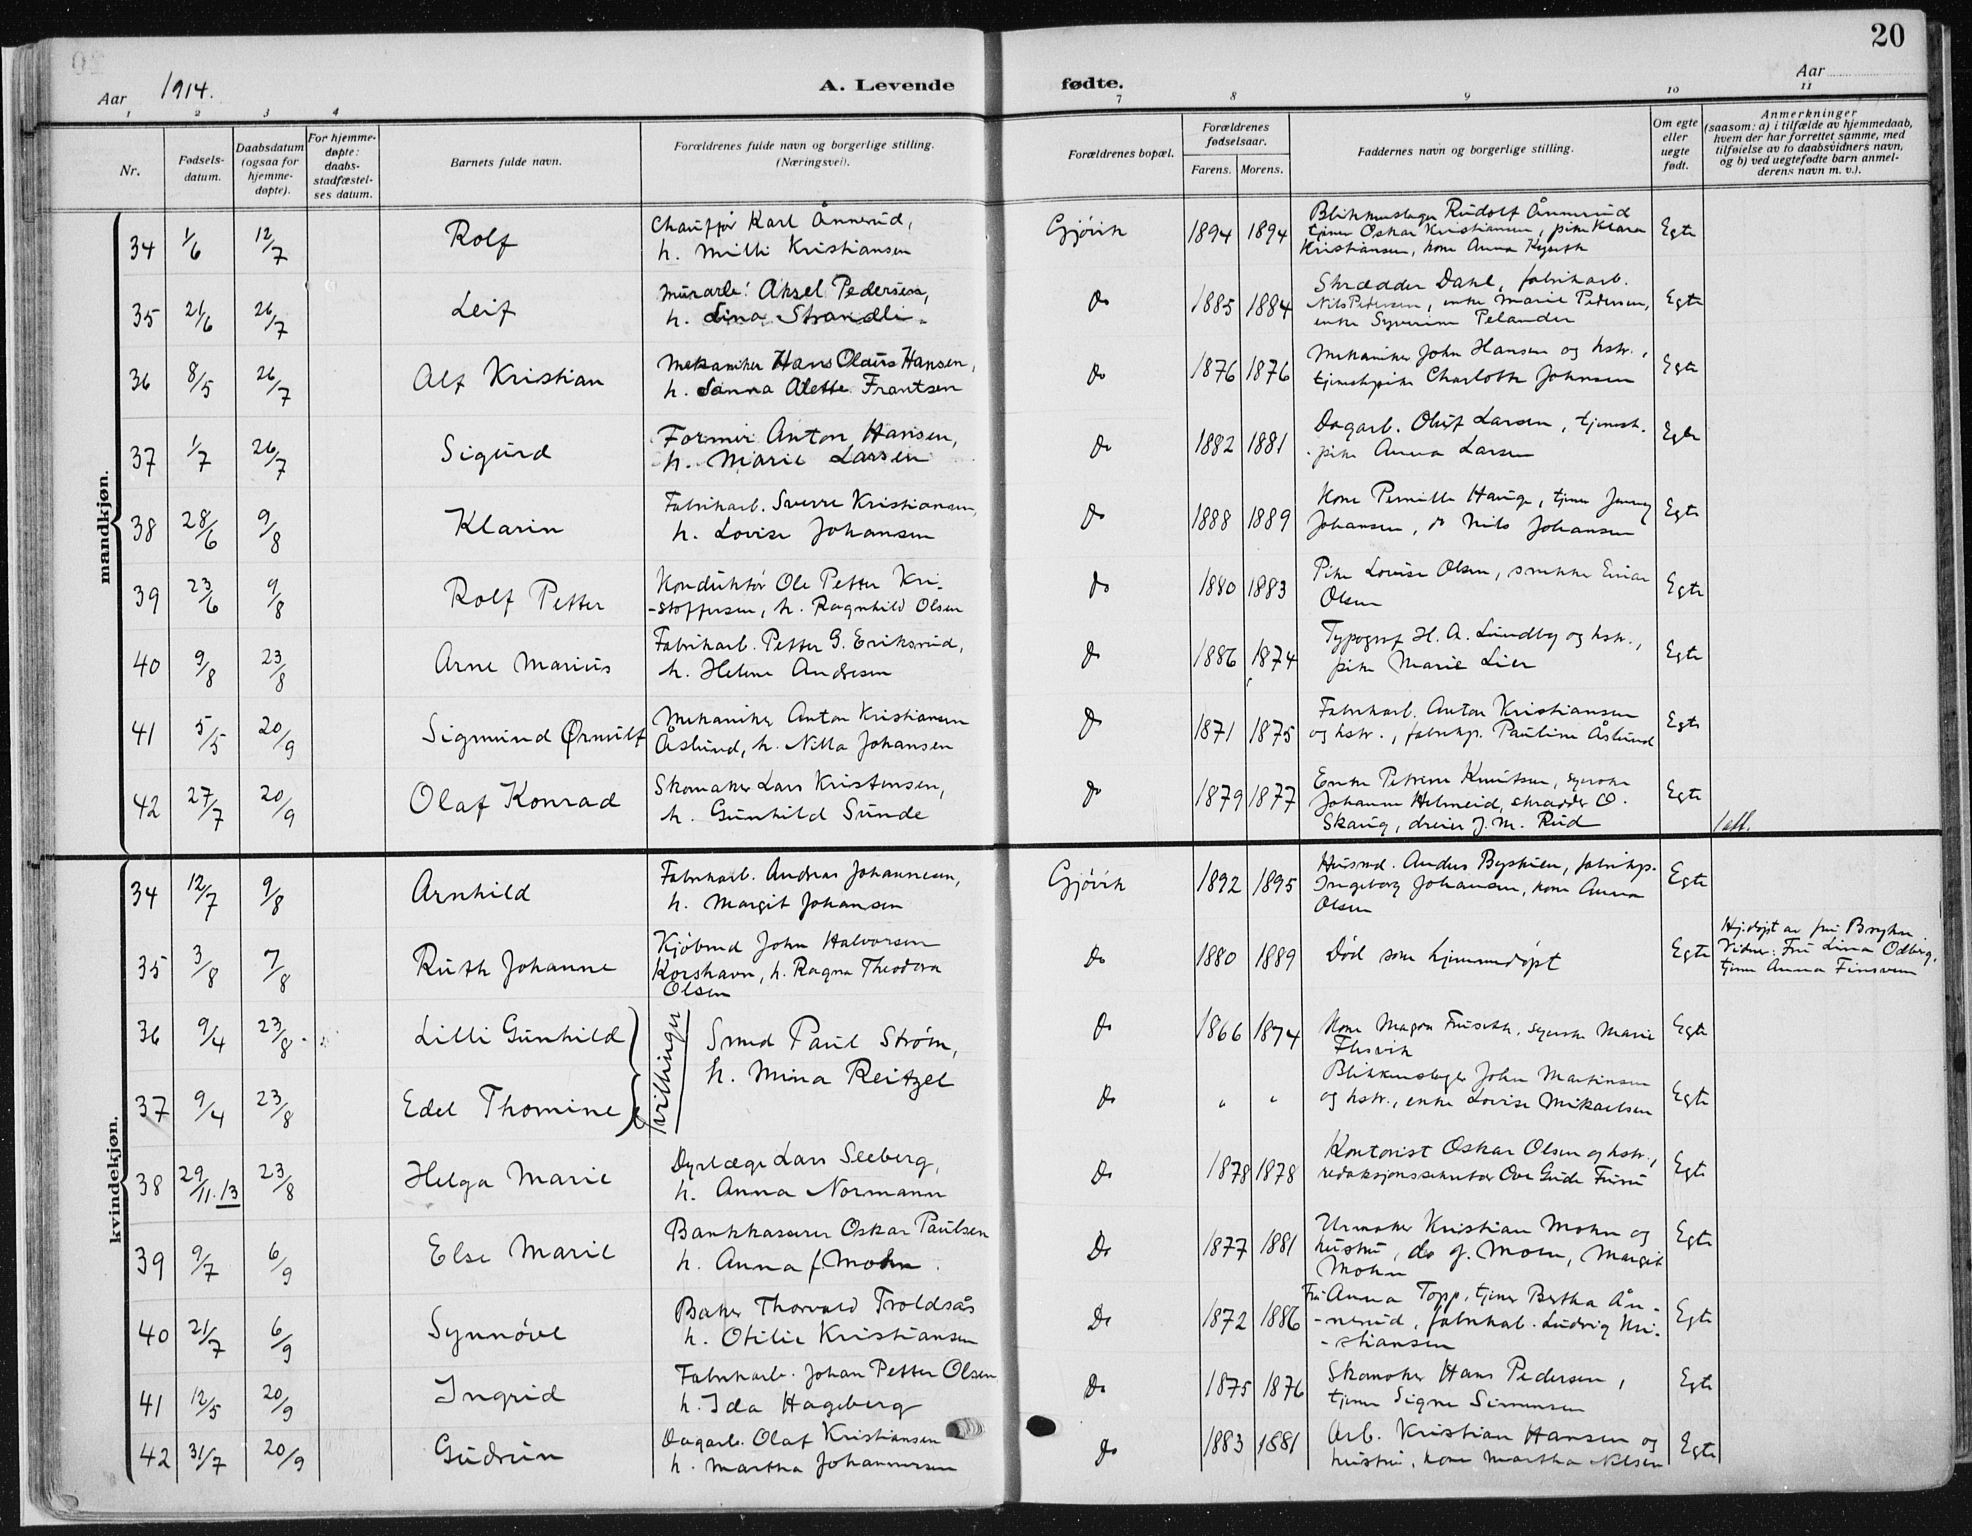 20
Aar 1914.
A. Levende fødte.
Aar
1 2 3 4 7 8 9 10 11
Nr.
Fødsels-
datum.
Daabsdatum
(ogsaa for
hjemme-
døpte).
For hjemme-
døpte:
daabs-
stadfæstel-
ses datum.
Barnets fulde navn.
Forældrenes fulde navn og borgerlige stilling.
(Næringsvei).
Forældrenes bopæl.
Forældrenes
fødselsaar.
Farens. Morens.
Faddernes navn og borgerlige stilling.
Om egte
eller
uegte
født.
Anmerkninger
(saasom: a) i tilfælde av hjemmedaab,
hvem der har forrettet samme, med
tilføielse av to daabsvidners navn,
og b) ved uegtefødte barn anmel-
derens navn m. v.).
mandkjøn.
34 1/6 12/7 Rolf
Chauffør Karl Ånnerud,
h. Milli Kristiansen
Gjøvik 1894 1894
Blikkenslager Rudolf Ånnerud
tjener Oskar Kristiansen, pike Klara
Kristiansen, kone Anna
Egte
35 21/6 26/7 Leif
Murarb. Aksel Pedersen,
h. Lina Strandli.
Do 1885 1884
Skrædder Dahl, fabrikarb.
Nils Pedersen, enke Marie Pedersen,
enke Syverine Pelander
Egte
36 8/5 26/7 Alf Kristian
Mekaniker Hans Olaus Hansen,
h. Sanna Alette Frantsen
Do 1876 1876
Mekaniker John Hansen og hstr.,
tjenestepike Charlotte Johnsen
Egte
37 1/7 26/7 Sigurd
Former Anton Hansen,
h. Marie Larsen
Do 1882 1881
Dagarb. Oluf Larsen, tjenest.
pike Anna Larsen
Egte
38 28/6 9/8 Klarin
Fabrikarb. Sverre Kristiansen,
h. Lovise Johansen
Do 1888 1889
Kone Pernille Hauge, tjener Jenny
Johansen, do Nils Johansen
Egte
39 23/6 9/8 Rolf Petter
Konduktør Ole Petter Kri-
-stoffersen, h. Ragnhild Olsen
Do 1880 1883
Pike Lovise Olsen, snekke Einar
Olsen
Egte
40 9/8 23/8 Arne Marius
Fabrikarb. Petter G. Eriksrud,
h. Helene Andresen
Do 1886 1874
Typograf H. A. Lundby og hstr.,
pike Marie Lier
Egte
41 5/5 20/9 Sigmund Ørnulf
Mekaniker Anton Kristiansen
Åslund, h. Nilla Johansen
Do 1871 1875
Fabrikarb. Anton Kristiansen
og hstr., fabrikp. Pauline Åslund
Egte
42 27/7 20/9 Olaf Konrad
Skomaker Lars Kristensen,
h. Gunhild Sunde
Do 1879 1877
Enke Petrine Knutsen, syerske
Johanne Helmeid, skrædder O.
Skaug, dreier J. M. Rud
Egte
1 att.
kvindekjøn.
34 12/7 9/8 Arnhild
Fabrikarb. Andreas Johannesen,
h. Margit Johansen
Gjøvik 1892 1895
Husmd. Anders Byskuen, fabrikp.
Ingeborg Johansen, kone Anna
Olsen
Egte
35 3/8 7/8 Ruth Johanne
Kjøbmd John Halvorsen
Korshavn, h. Ragna Theodora
Olsen
Do 1880 1889
Død som hjemmedøpt
Egte
Hj.døpt av fru
Vidner: Fru Lina Odberg,
tjener Anna
36 9/4 23/8 Lilli Gunhild
tvillinger
Smed Paul Strøm,
h. Mina Reitzel
Do 1866 1874
Kone Magna Fuseth, syerske Marie
Flesvik
Egte
37 9/4 23/8 Edel Thomine
Do " "
Blikkenslager John Martinsen
og hstr., enke Lovise Mikaelsen
Egte
38 29/11.13 23/8 Helga Marie
Dyrlæge Lars Seeberg,
h. Anna Normann
Do 1878 1878
Kontorist Oskar Olsen og hstr.,
redaksjonssekretær Ove Gude
Egte
39 9/7 6/9 Else Marie
Bankkasserer Oskar Paulsen
h. Anna f. Mohn.
Do 1877 1881
Urmaker Kristian Mohn og
hustru, do J. Moen, Margit
Mohn
Egte
40 21/7 6/9 Synnøve
Baker Thorvald Troldsås
h. Otilie Kristiansen
Do 1872 1886
Fru Anna Topp, tjener Bertha Ån-
-nerud, fabrikarb. Ludvig Kri-
-stiansen
Egte
41 12/5 20/9 Ingrid
Fabrikarb. Johan Petter Olsen
h. Ida Hageberg
Do 1875 1876
Skomaker Hans Pedersen,
tjener Signe Simensen
Egte
42 31/7 20/9 Gudrun
Dagarb. Olaf Kristiansen
h. Martha Johannessen
Do 1883 1881
Arb. Kristian Hansen og
hustru, kone Martha Nilsen
Egte